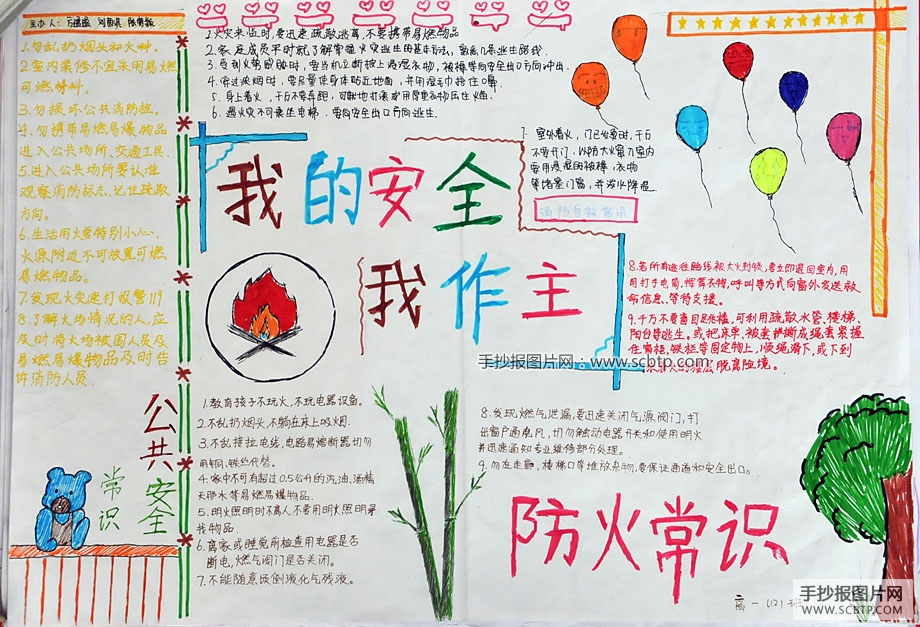 主办人：
1.勿乱扔烟头和火种。
2.室内装修不宜采用易燃
可燃材料。
3.勿损坏公共消防栓。
4.勿携带易燃易爆物品
进入公共场所、交通工具。
5.进入公共场所要认准
观察消防标志，记住疏散
方向。
6.生活用火要特别小心，
火源附近不可放置可燃
易燃物品。
7.发现火灾速打报警119
8.了解火场情况的人，应
及时将火场被困人员及
易燃易爆物品及时告
诉消防人员.
公共安全
常识
1.火灾来临时，要迅速疏散逃离，不要携带易燃物品
2.家庭成员平时就了解掌握火灾逃生的基本方法，熟悉几条逃生路线。
3.受到火势威胁时，要当机立断披上浸湿衣物，被褥等向安全出口方向冲出.
4.穿过浓烟时，要尽量使身体贴近地面，并用湿毛巾捂住口鼻.
5.身上着火，千万不要奔跑，可就地打滚或用厚重衣物压住火苗.
6.遇火灾不可乘坐电梯，要向安全出口方向逃生.
7.室外着火，门已发烫时，千万
不要开门，以防大火窜入室内
要用浸湿的被褥，衣物
等堵塞门窗，并泼水降温.
消防自救常识
我的安全
我作主
8.若所有逃生路线被大火封锁，要立即退回室内，用
用打手电筒，挥舞衣物，呼叫等方式向窗外发送求
命信息，等待支援。
9.千万不要盲目跳楼，可利用疏散水管、楼梯、
阳台等逃生。或把床单，被套撕成绳索紧握
住窗框，铁栏等固定物上，顺绳滑下，或下到
脱离险境。
手抄报图片网：www.scbtp.com
1.教育孩子不玩火，不玩电器设备。
2.不乱扔烟头，不躺在床上吸烟.
3.不乱接拉电线，电路易熔断器切勿
用铜、铁丝代替。
4.家中不可存超过0.5公升的汽油、酒精
天那水等易燃易爆物品.
5.明火照明时不离人，不要用明火照明寻
找物品
6.离家或睡觉前检查用电器是否
断电，燃气阀门是否关闭。
7.不能随意废倒液化气残液。
8.发现燃气泄漏，要迅速关闭气源阀门，打
出窗户通风，切勿触动电器开关和使用明火
并迅速通知专业维修部分处理。
9.勿在走廊，楼梯口等堆放杂物，要保证通道和安全出口。
防火常识
高一（12）班
手抄报图片网
WWW.SCBTP.COM